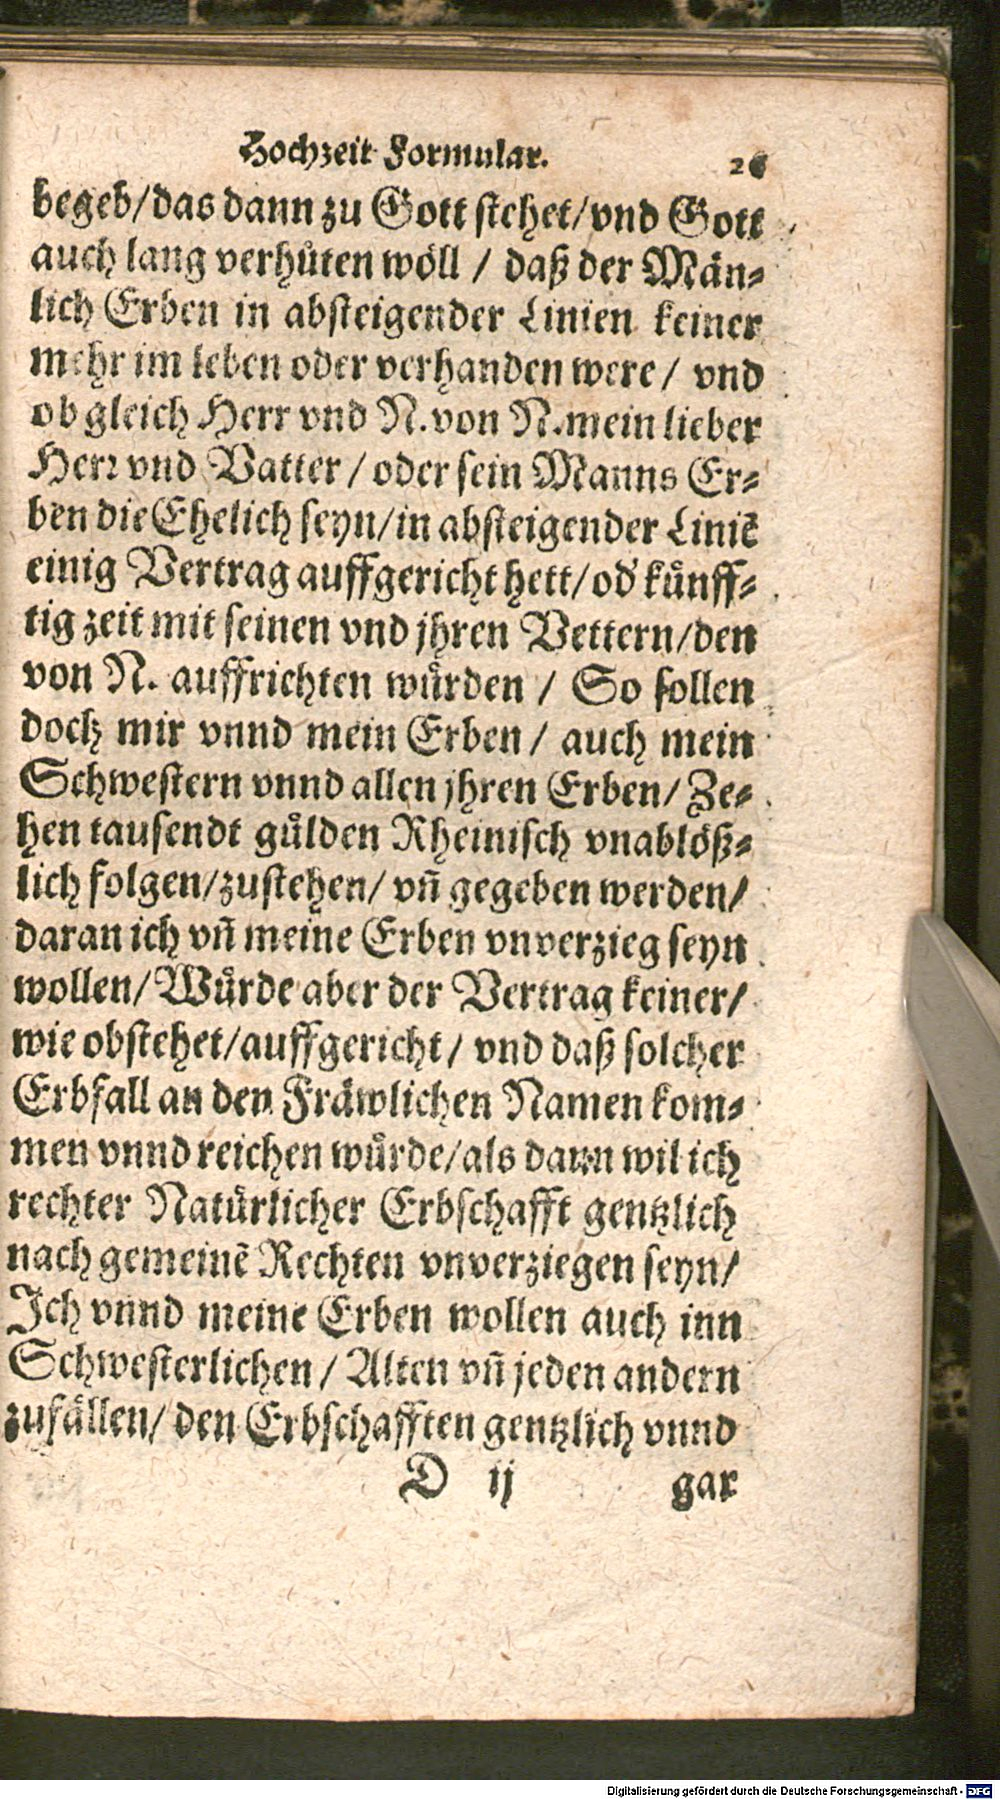 Hochzeit Formular. 26
begeb/das dann zu Gott stehet/vnd Gott
auch lang verhuͤten woͤll / daß der Maͤn⸗
lich Erben in absteigender Linien keiner
mehr im leben oder verhanden were / vnd
ob gleich Herr vnd N. von N. mein lieber
Herr vnd Vatter / oder sein Manns Er⸗
ben die Ehelich seyn/in absteigender Liniē
einig Vertrag auffgericht hett/od' kuͤnff⸗
tig zeit mit seinen vnd jhren Vettern/den
von N. auffrichten wuͤrden / So sollen
doch mir vnnd mein Erben / auch mein
Schwestern vnnd allen jhren Erben/ Ze⸗
hen tausendt guͤlden Rheinisch vnabloͤß⸗
lich folgen/zustehen/ vñ gegeben werden/
daran ich vñ meine Erben vnverzieg seyn
wollen/ Wuͤrde aber der Vertrag keiner/
wie obstehet/auffgericht / vnd daß solcher
Erbfall an den Fraͤwlichen Namen kom⸗
men vnnd reichen wuͤrde/als dann wil ich
rechter Natuͤrlicher Erbschafft gentzlich
nach gemeinē Rechten vnverziegen seyn/
Ich vnnd meine Erben wollen auch inn
Schwesterlichen / Alten vñ jeden andern
zufaͤllen/ den Erbschafften gentzlich vnnd
D ij gar
Digitalisierung gefördert durch die Deutsche Forschungsgemeinschaft - DFG